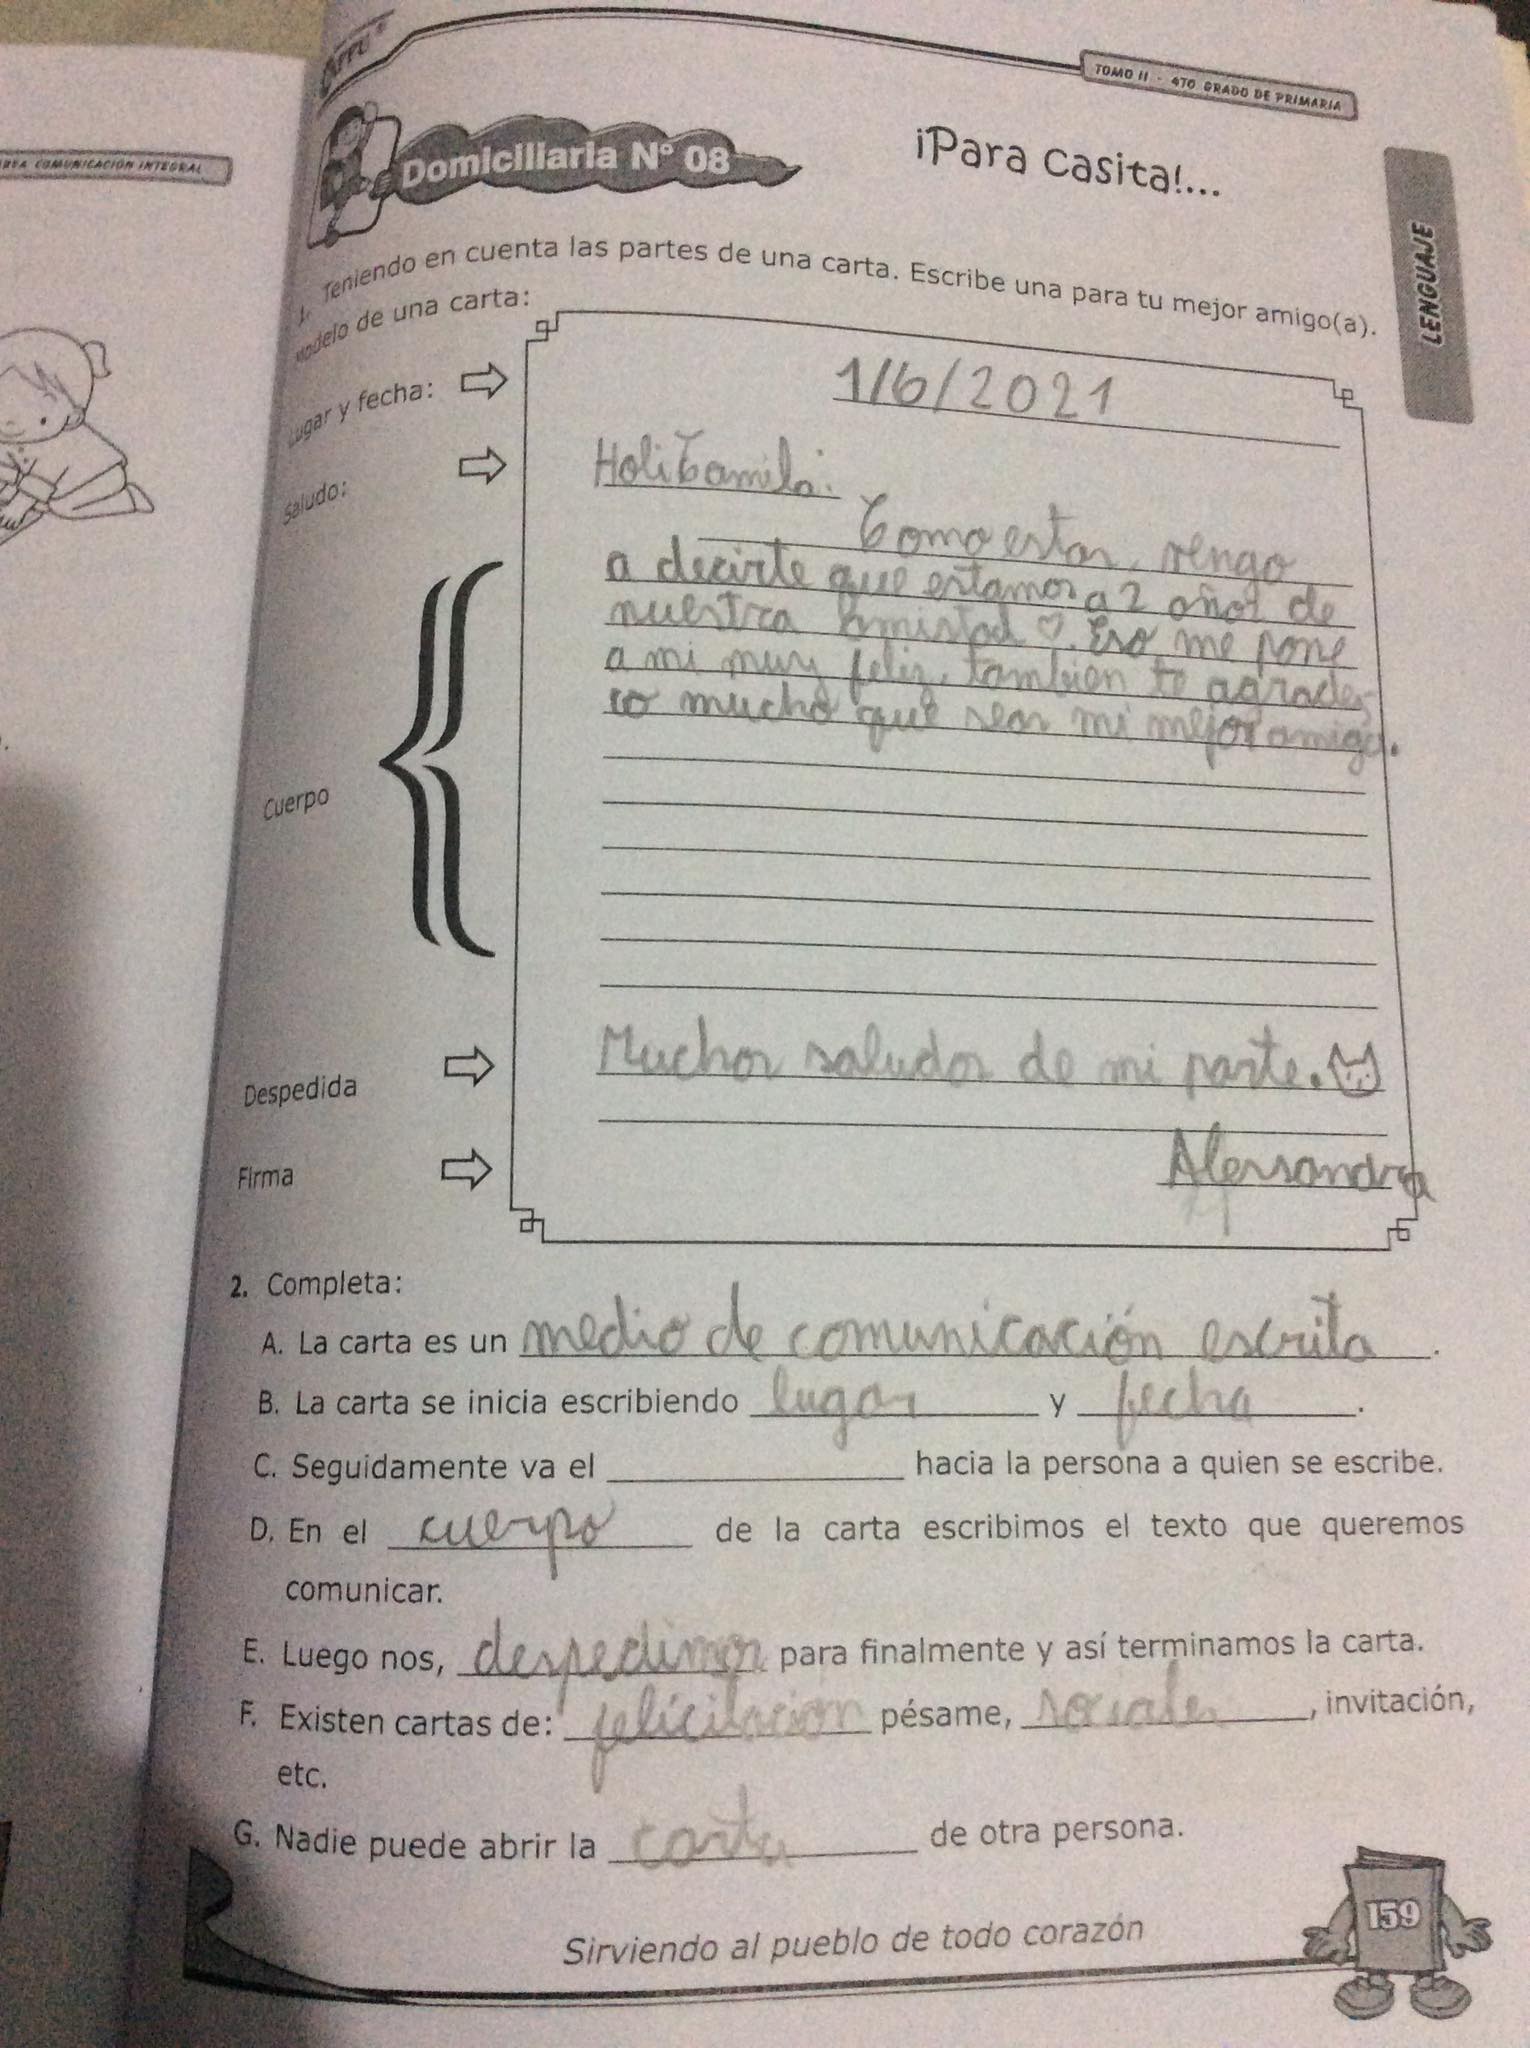 ÁREA COMUNICACIÓN INTEGRAL
TOMO II - 4TO GRADO DE PRIMARIA
Domiciliaria N° 08
¡Para Casita!...
LENGUAJE
1. Teniendo en cuenta las partes de una carta. Escribe una para tu mejor amigo(a).
Modelo de una carta:
Lugar y fecha:
1/6/2021
Saludo:
Holi Camila.
Como estas, vengo
a decirte que estamos a 2 años de
nuestra amistad ♡. Eso me pone
a mi muy feliz, tambien te agrades-
co mucho que seas mi mejor amiga.
Cuerpo
Despedida
Muchos saludos de mi parte.
Firma
Alessandra
2. Completa:
A. La carta es un medio de comunicación escrita.
B. La carta se inicia escribiendo lugar y fecha.
C. Seguidamente va el ____ hacia la persona a quien se escribe.
D. En el cuerpo de la carta escribimos el texto que queremos
comunicar.
E. Luego nos, despedimos para finalmente y así terminamos la carta.
F. Existen cartas de: felicitacion pésame, sociales, invitación,
etc.
G. Nadie puede abrir la carta de otra persona.
Sirviendo al pueblo de todo corazón
159